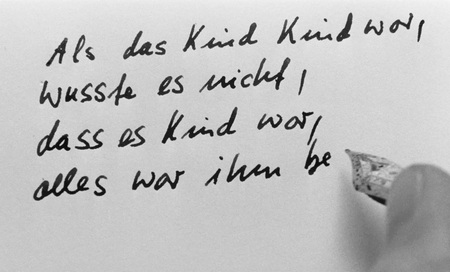 Als das Kind Kind war,
wusste es nicht,
dass es Kind war,
alles war ihm be